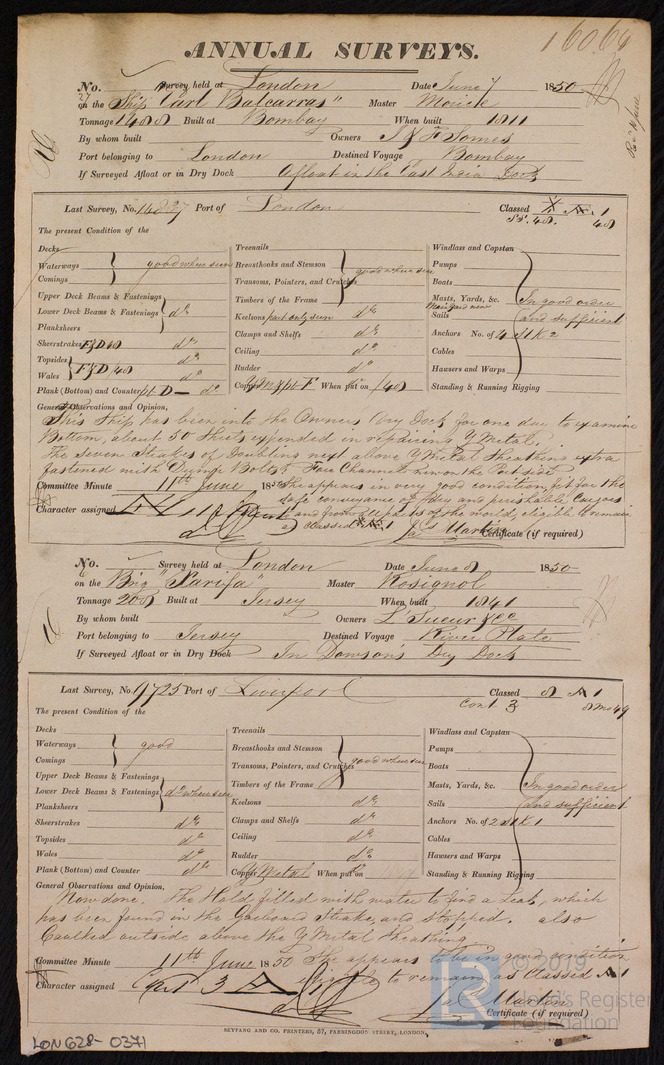 16064
ANNUAL SURVEYS.
No. Survey held at London Date June 7 1850
27 on the Ship "Earl Balcarras" Master Morice
Tonnage 1488 Built at Bombay When built 1811
By whom built Owners J & F Somes
Port belonging to London Destined Voyage Bombay
If Surveyed Afloat or in Dry Dock Afloat in the East India Dock
Last Survey, No. Port of London Classed 1
The present Condition of the 48
Decks Treenails Windlass and Capstan
Waterways good where seen Breasthooks and Stemson good where seen Pumps
Comings Transoms, Pointers, and Crutches Boats
Upper Deck Beams & Fastenings Timbers of the Frame Masts, Yards, &c. In good order
Lower Deck Beams & Fastenings do Keelsons part only seen do Main yard new Sails and sufficient
Planksheers Clamps and Shelfs do Anchors No. of 4 St K 2
Sheerstrakes do Ceiling do Cables
Topsides do Rudder do Hawsers and Warps
Wales F & D 48 do Copper When put on /48 Standing & Running Rigging
Plank (Bottom) and Counter pt D do
General Observations and Opinion,
This Ship has been into the Owners Dry Dock for one day to examine
Bottom, about 50 Sheets expended in repairing Y Metal.
The Seven Strakes of Doubling next above Y Metal Sheathing extra
fastened with Dump Bolts. Fore Channels new on the Port side
Committee Minute 11th June 1850 She appears in very good condition, fit for the
safe conveyance of dry and perishable Cargoes
Character assigned and from all parts of the world, eligible to remain
as classed 1
Jas Martin Certificate (if required)
No. Survey held at London Date June 8 1850
on the Brig "Parifa" Master Rosignol
Tonnage 208 Built at Jersey When built 1841
By whom built Owners L Sueur & Co
Port belonging to Jersey Destined Voyage River Plate
If Surveyed Afloat or in Dry Dock In Dowson's Dry Dock
Last Survey, No. 9725 Port of Liverpool Classed 8 A 1
The present Condition of the Cont 3 8 mo 49
Decks Treenails Windlass and Capstan
Waterways good Breasthooks and Stemson good where seen Pumps
Comings Transoms, Pointers, and Crutches Boats
Upper Deck Beams & Fastenings Timbers of the Frame Masts, Yards, &c. In good order
Lower Deck Beams & Fastenings do where seen Keelsons do Sails and sufficient
Planksheers Clamps and Shelfs do Anchors No. of 2 St K 1
Sheerstrakes do Ceiling do Cables
Topsides do Rudder do Hawsers and Warps
Wales do Copper Y Metal When put on Standing & Running Rigging
Plank (Bottom) and Counter do
General Observations and Opinion,
Now done. The Hold filled with water to find a Leak, which
has been found in the Garboard Strake, and stopped. also
Caulked outside above the Y Metal Sheathing.
Committee Minute 11th June 1850 She appears to be in good condition
eligible to remain as Classed A 1
Character assigned Cont 3 Jas Martin
Certificate (if required)
SEYFANG AND CO. PRINTERS, 57, FARRINGDON STREET, LONDON.
LON628-0371
© 2019
Lloyd's Register
Foundation